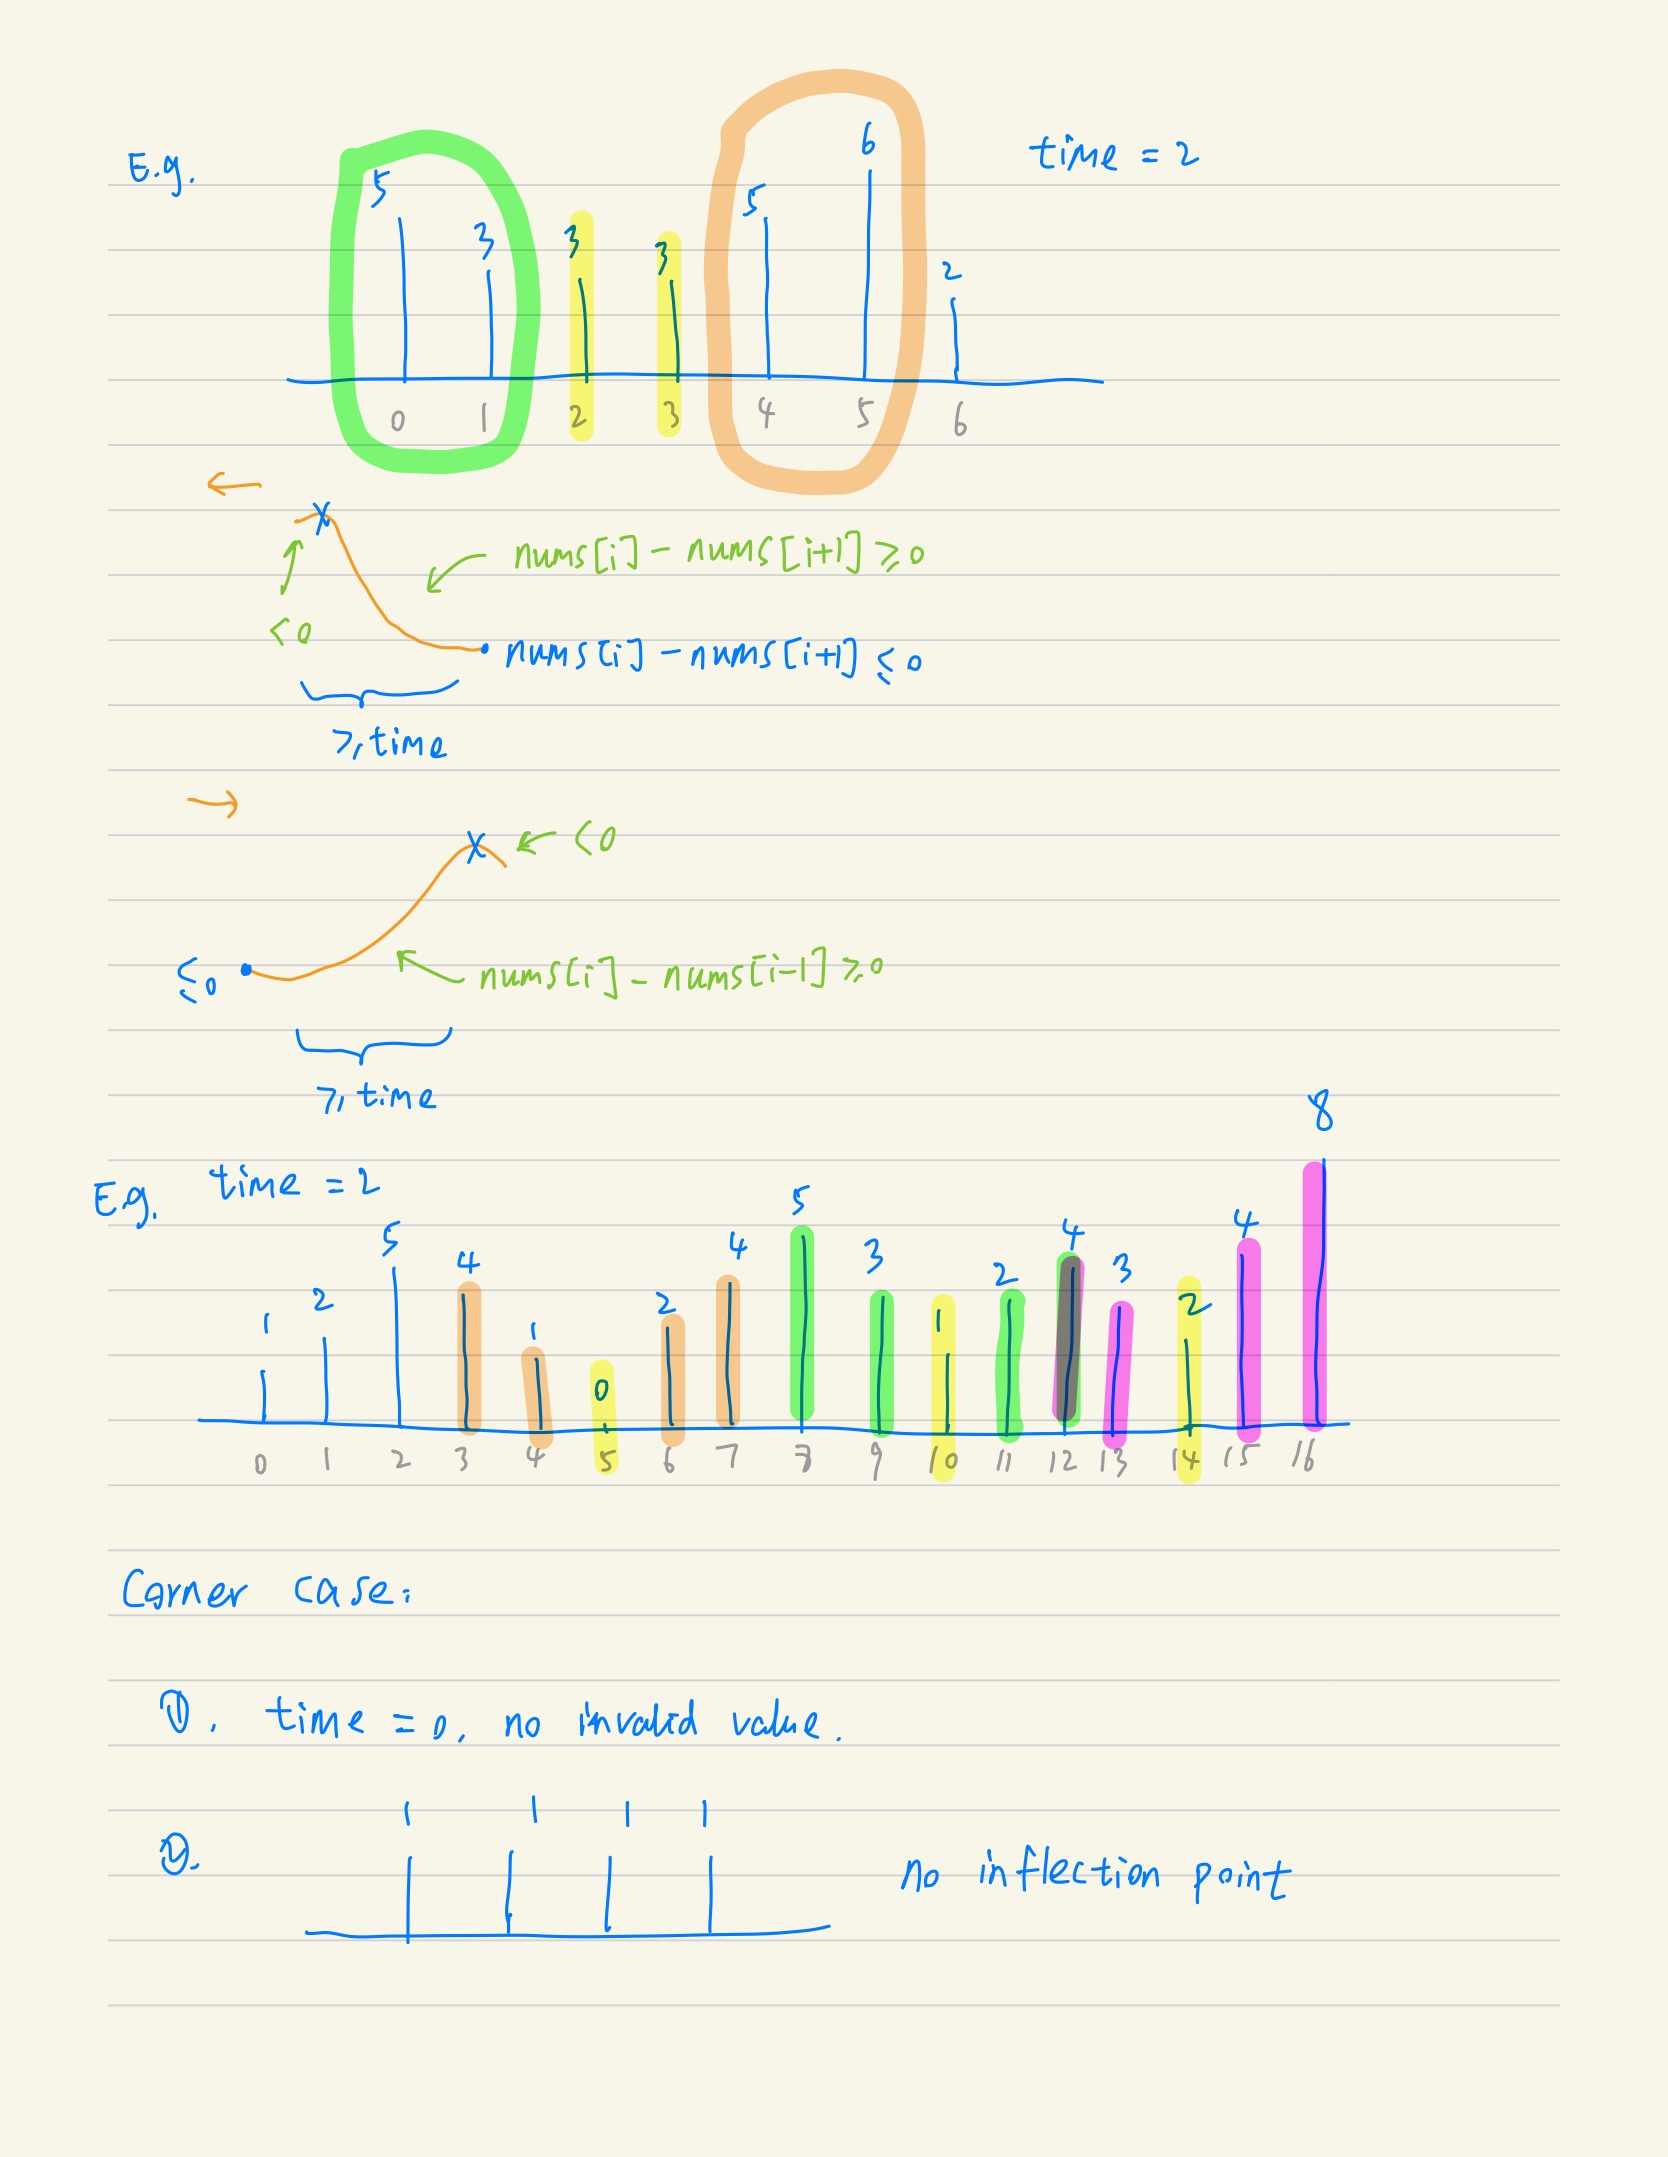 E.g. 5 3 3 3 5 6 2 time = 2
0 1 2 3 4 5 6
nums[i] - nums[i+1] ≥ 0
< 0
nums[i] - nums[i+1] ≤ 0
≥ time
< 0
≤ 0 nums[i] - nums[i-1] ≥ 0
≥ time
E.g. time = 2
1 2 5 4 1 0 2 4 5 3 1 2 4 3 2 4 8
0 1 2 3 4 5 6 7 8 9 10 11 12 13 14 15 16
Corner case:
①. time = 0, no invalid value.
1 1 1 1
②. no inflection point